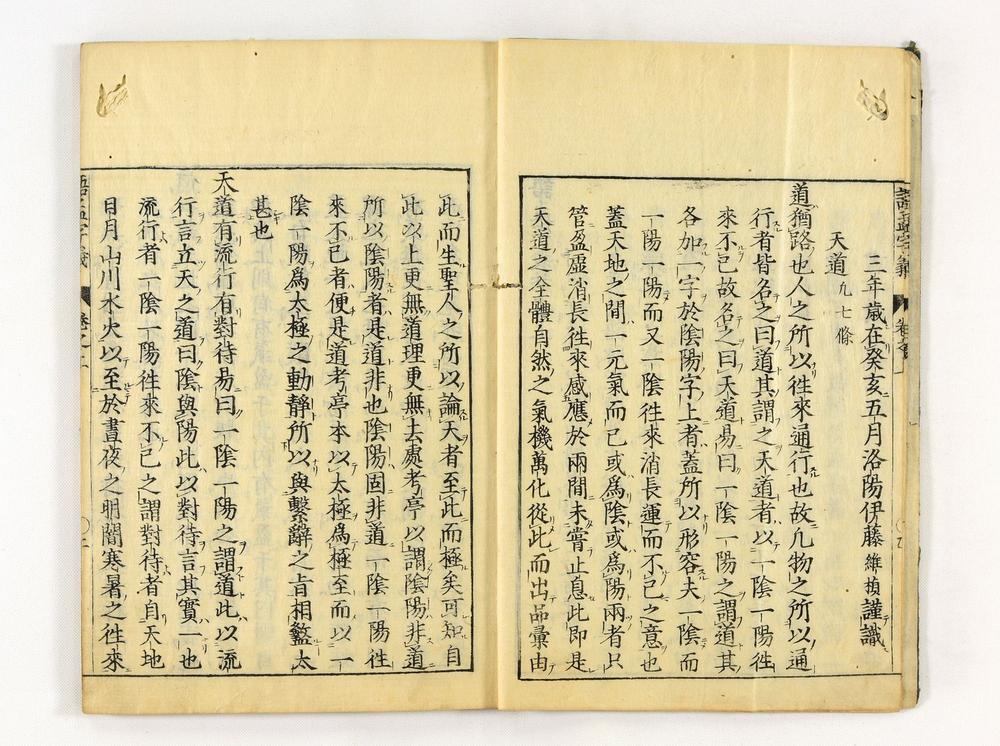 三年歳在癸亥五月洛陽伊藤維楨謹識
天道 凢七條
道猶路也人之所以徃來通行也故凢物之所以通
行者皆名之曰道其謂之天道者以一陰一陽徃
來不已故名之曰天道易曰一陰一陽之謂道其
各加一字於陰陽字上者蓋所以形容夫一陰而
一陽一陽而又一陰徃來消長運而不已之意也
蓋天地之間一元氣而已或為陰或為陽兩者只
管盈虚消長徃來感應於兩間未嘗止息此即是
天道之全體自然之氣機萬化從此而出品彙由
此而生聖人之所以論天者至此而極矣可知自
此以上更無道理更無去處考亭以謂陰陽非道
所以陰陽者是道非也陰陽固非道一陰一陽徃
來不已者便是道考亭本以太極為極至而以一
陰一陽為太極之動靜所以與繫辭之旨相盭太
甚也
天道有流行有對待易曰一陰一陽之謂道此以流
行言立天之道曰陰與陽此以對待言其實一也
流行者一陰一陽徃來不已之謂對待者自天地
日月山川水火以至於晝夜之明闇寒暑之徃來